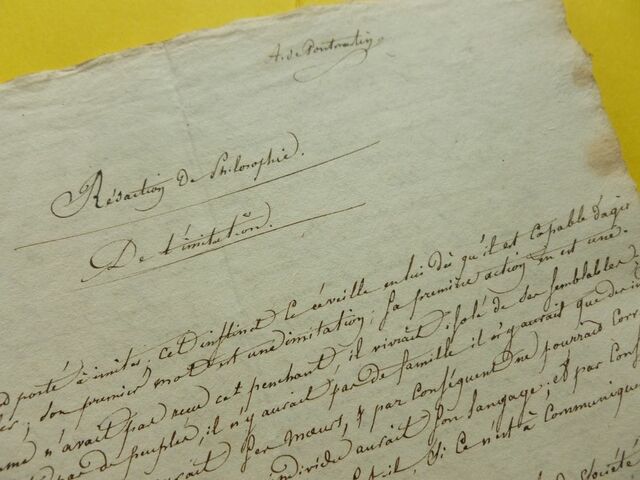 A. de Pontmartin
Rédaction de Philosophie.
De l'imitation.
porté à imiter; cet instinct se réveille en lui dès qu'il est capable d'agir
son premier mot est une imitation; sa première action en est une.
n'avait pas reçu cet penchant, il vivrait isolé de ses semblables
pas de peuples, il n'y aurait pas de famille il n'y aurait que des in
ses mœurs, & par conséquent ne pourrait corr
individu aurait son langage, et par cons
si ce n'est à communique
Société